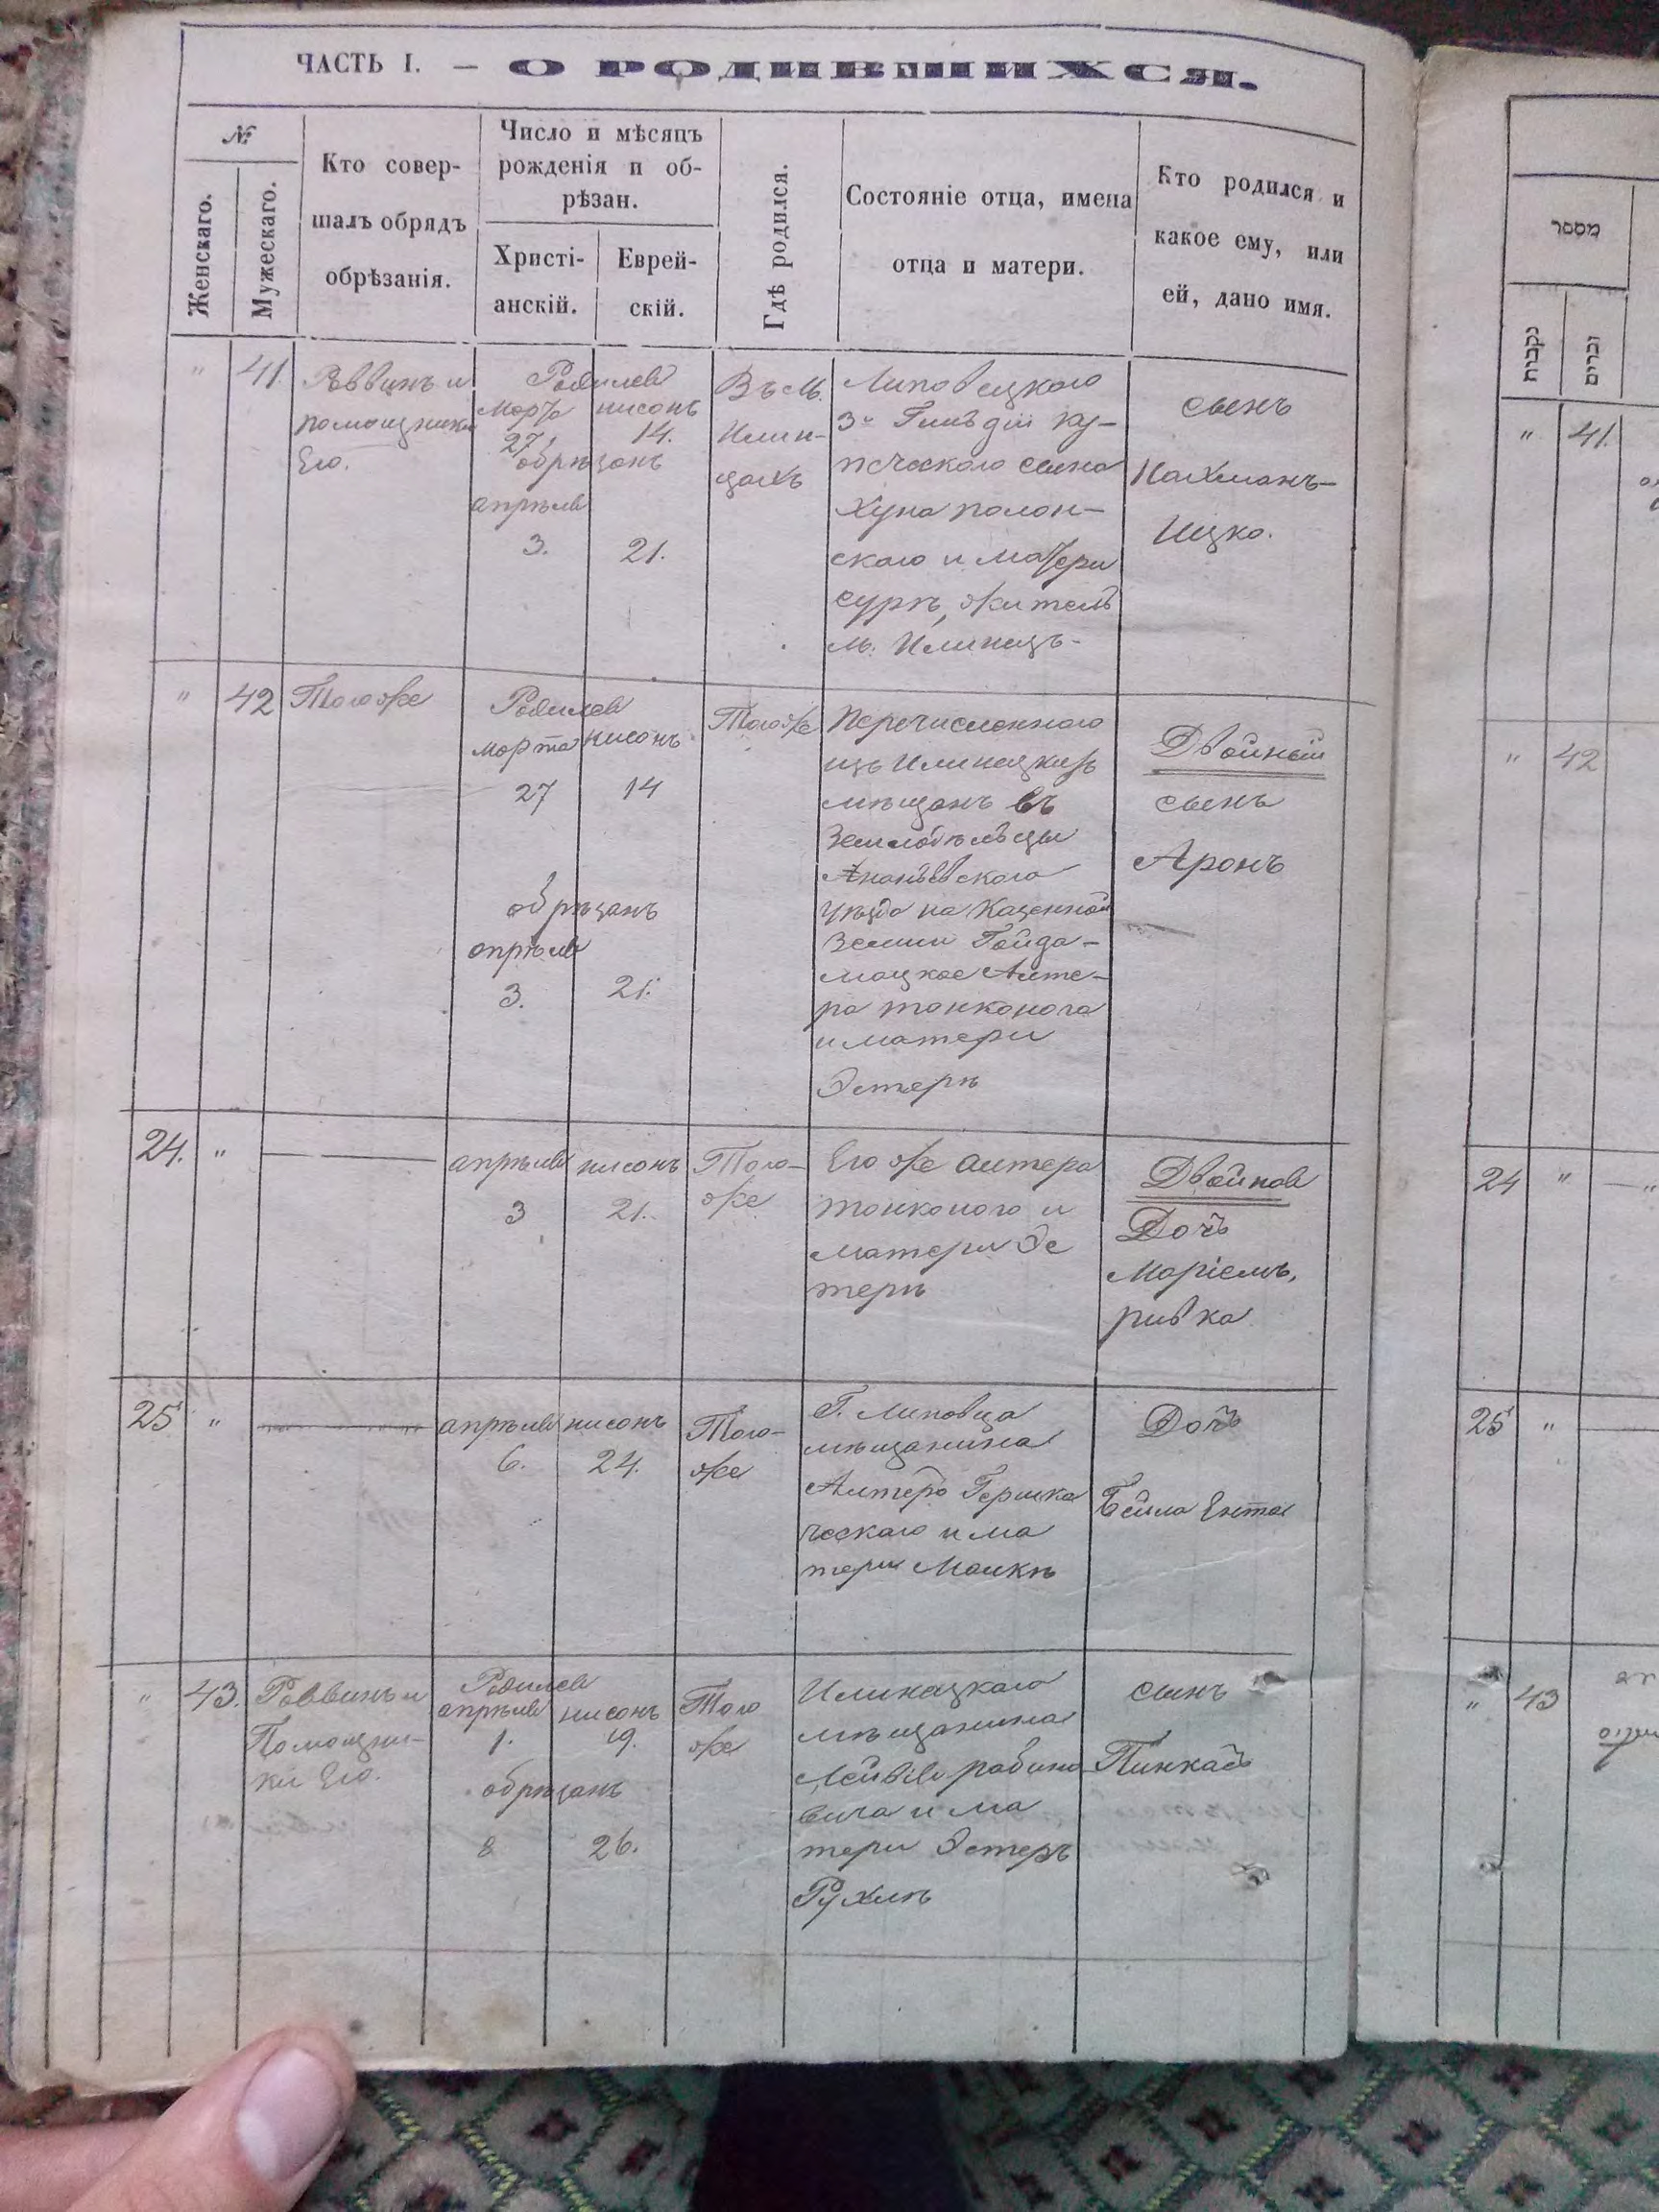 ЧАСТЬ I. — О РОДИВШИХСЯ.
№
Женскаго.
Мужескаго.
Кто совер-
шалъ обрядъ
обрѣзанія.
Число и мѣсяцъ
рожденія и об-
рѣзан.
Христі-
анскій.
Еврей-
скій.
Гдѣ родился.
Состояніе отца, имена
отца и матери.
Кто родился и
какое ему, или
ей, дано имя.
" 41.
Раввинъ и
помощники
Его.
Родился
мартъ нисонъ
27, 14.
обрѣзанъ
апрѣля
3. 21.
Въ м.
Илин-
цахъ
Липовецкаго
3й Гильдіи ку-
пческаго сына
Хуна полон-
скаго и матери
сурѣ, житель
м. Илинецъ-
сынъ
Нахманъ-
Ицко.
" 42
Тогоже
Родился
марта нисонъ
27 14
обрѣзанъ
апрѣля
3. 21.
Тогоже
Перечисленнаго
изъ Илинецкихъ
мѣщанъ въ
Земледѣльцы
Ананьевскаго
уѣзда на Казенной
Земли Гайда-
мацкое Алте-
ра тонконога
и матери
Эстерѣ
Двойный
сынъ
Аронъ
24. "
апрѣля нисонъ
3 21.
Того-
же
Его же алтера
тонконого и
матери Эс
терѣ
Двойная
Дочь
Маріемъ,
ривка
25 "
апрѣля нисонъ
6. 24.
Того-
же
Г. Липовца
мѣщанина
Алтера Гершка
ческаго и ма
тери Малкѣ
Дочь
Бейла Ента
" 43.
Раввинъ и
Помощни-
ки Его.
Родился
апрѣля нисонъ
1. 19.
обрѣзанъ
8 26.
Того
же
Илинецкаго
мѣщанина
Лейви рабино
вича и ма
тери Эстеръ
Рухлѣ
сынъ
Пинкасъ
מספר
נקבות
זכרים
" 41.
" 42
24 "
25 "
" 43